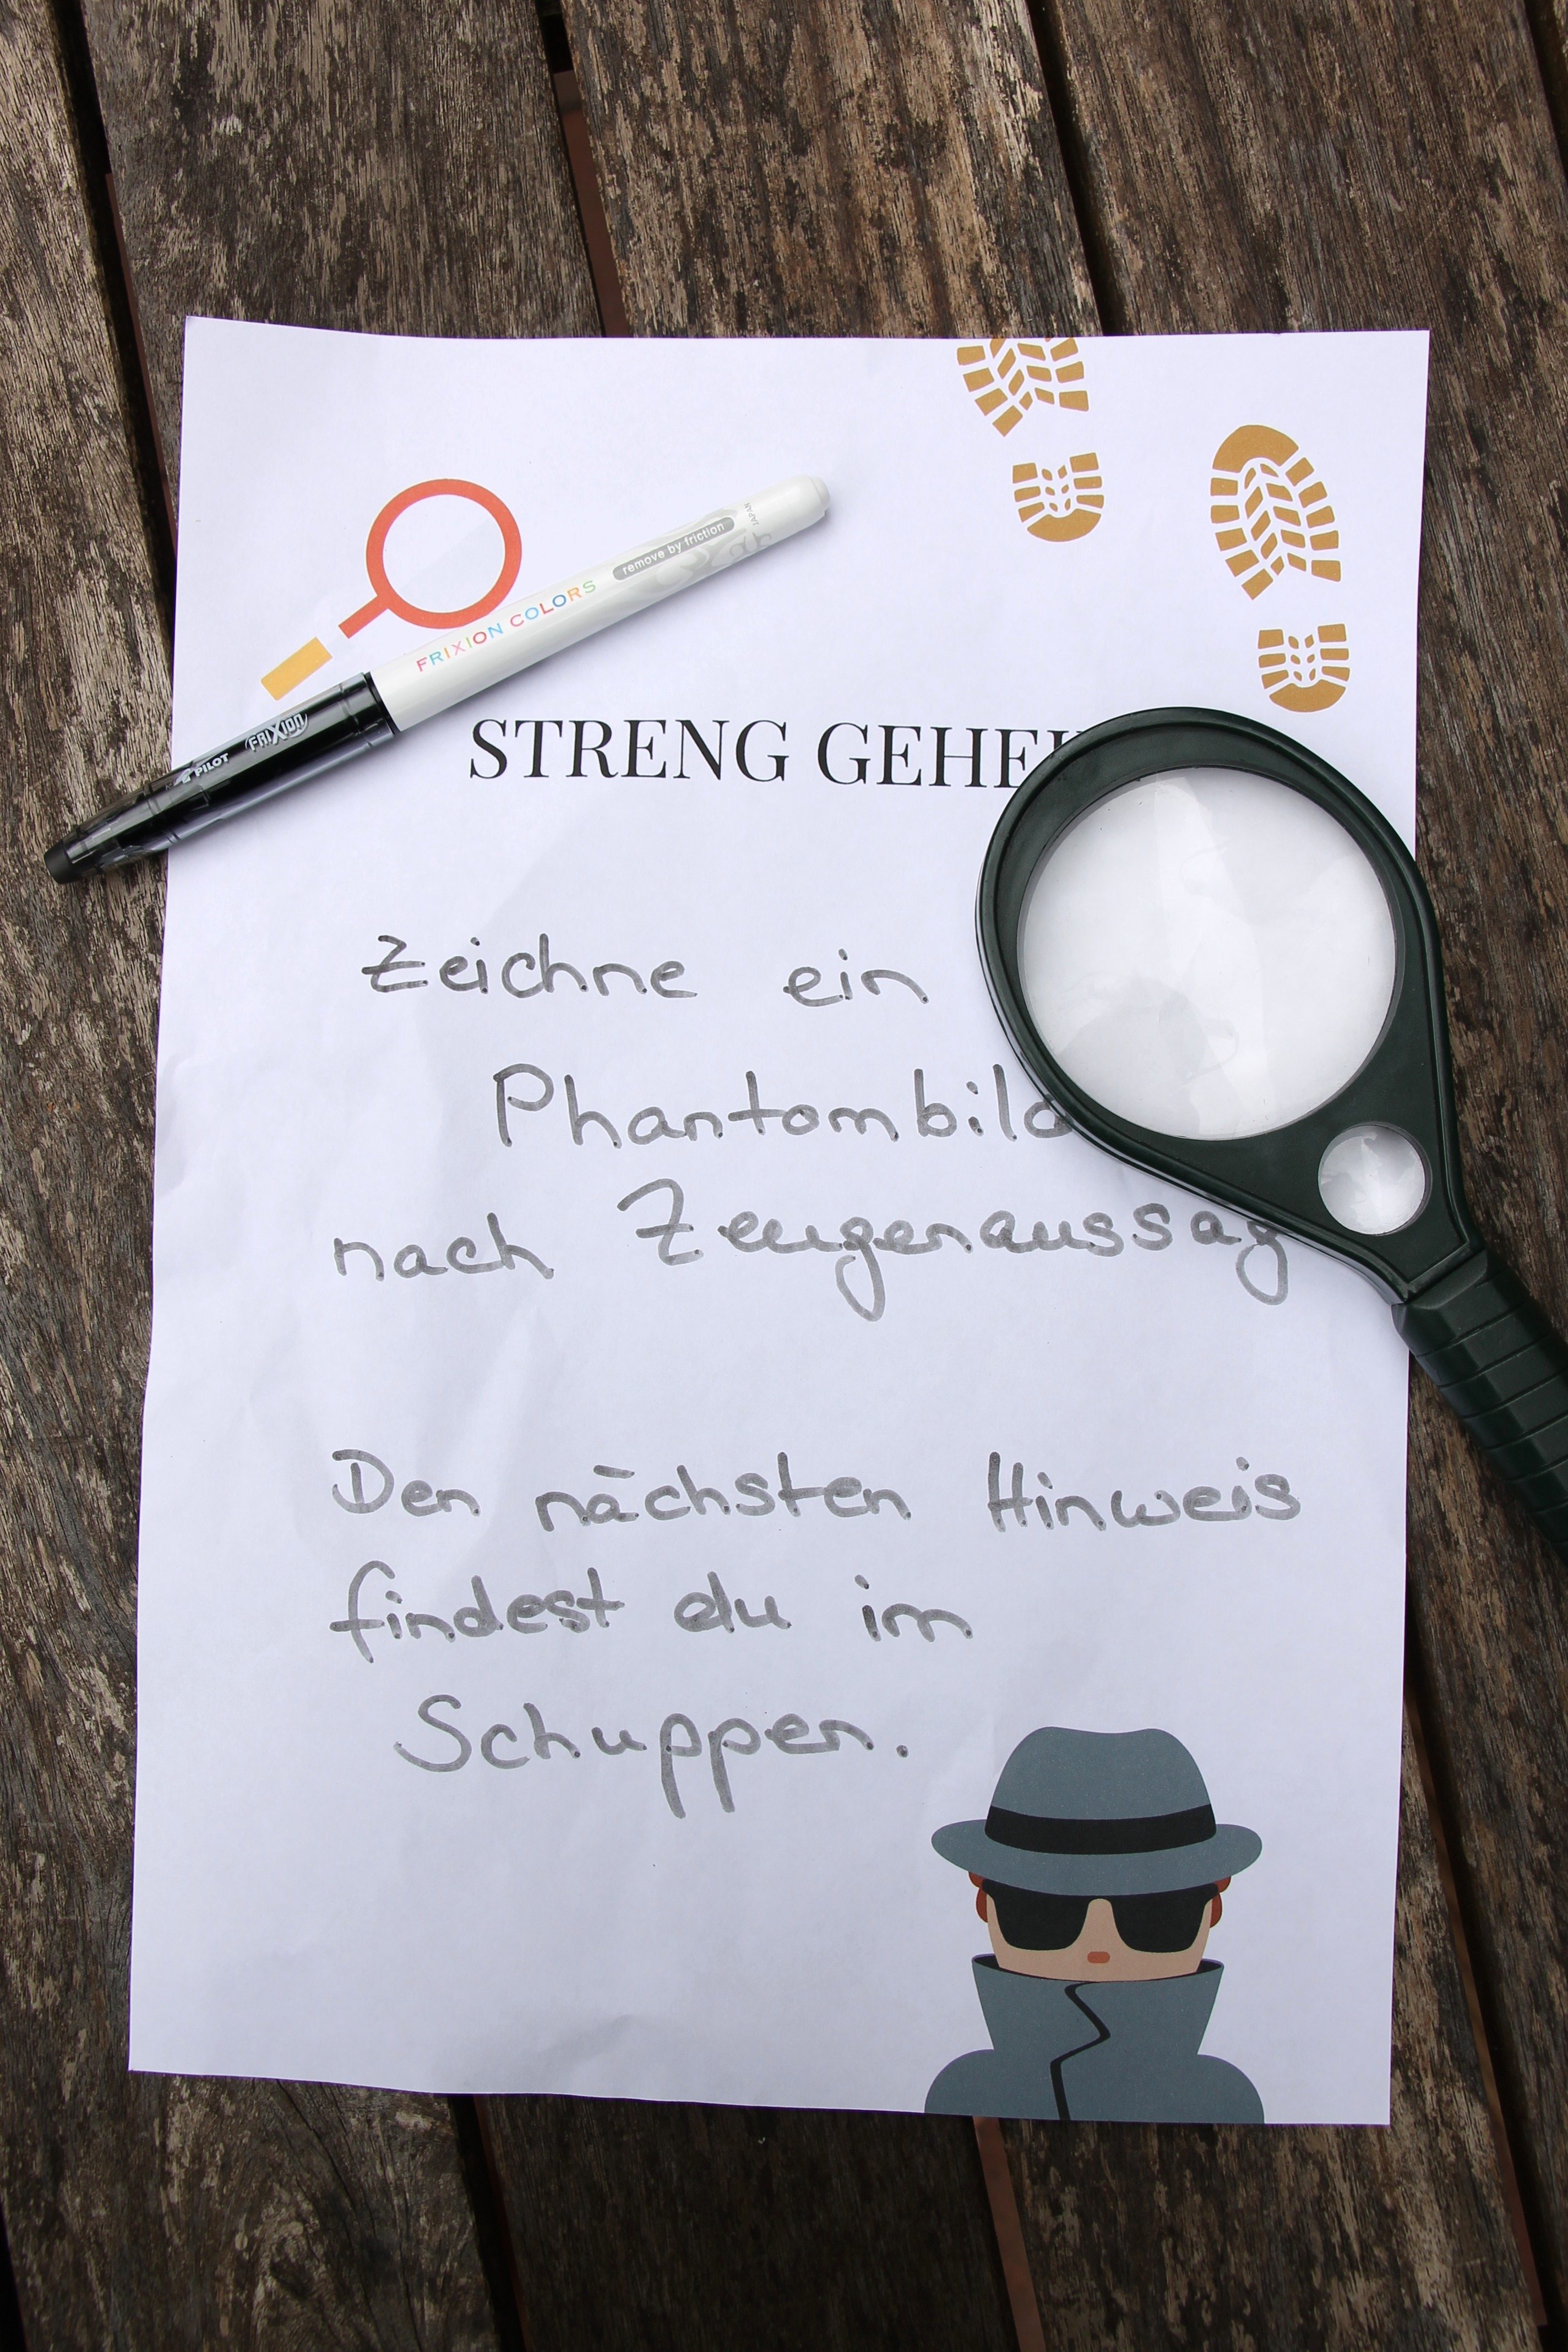 JAPAN
remove by friction
FRIXION COLORS
FRIXION
PILOT
STRENG GEHEI
Zeichne ein
Phantombild
nach Zeugenaussag
Den nächsten Hinweis
findest du im
Schuppen.